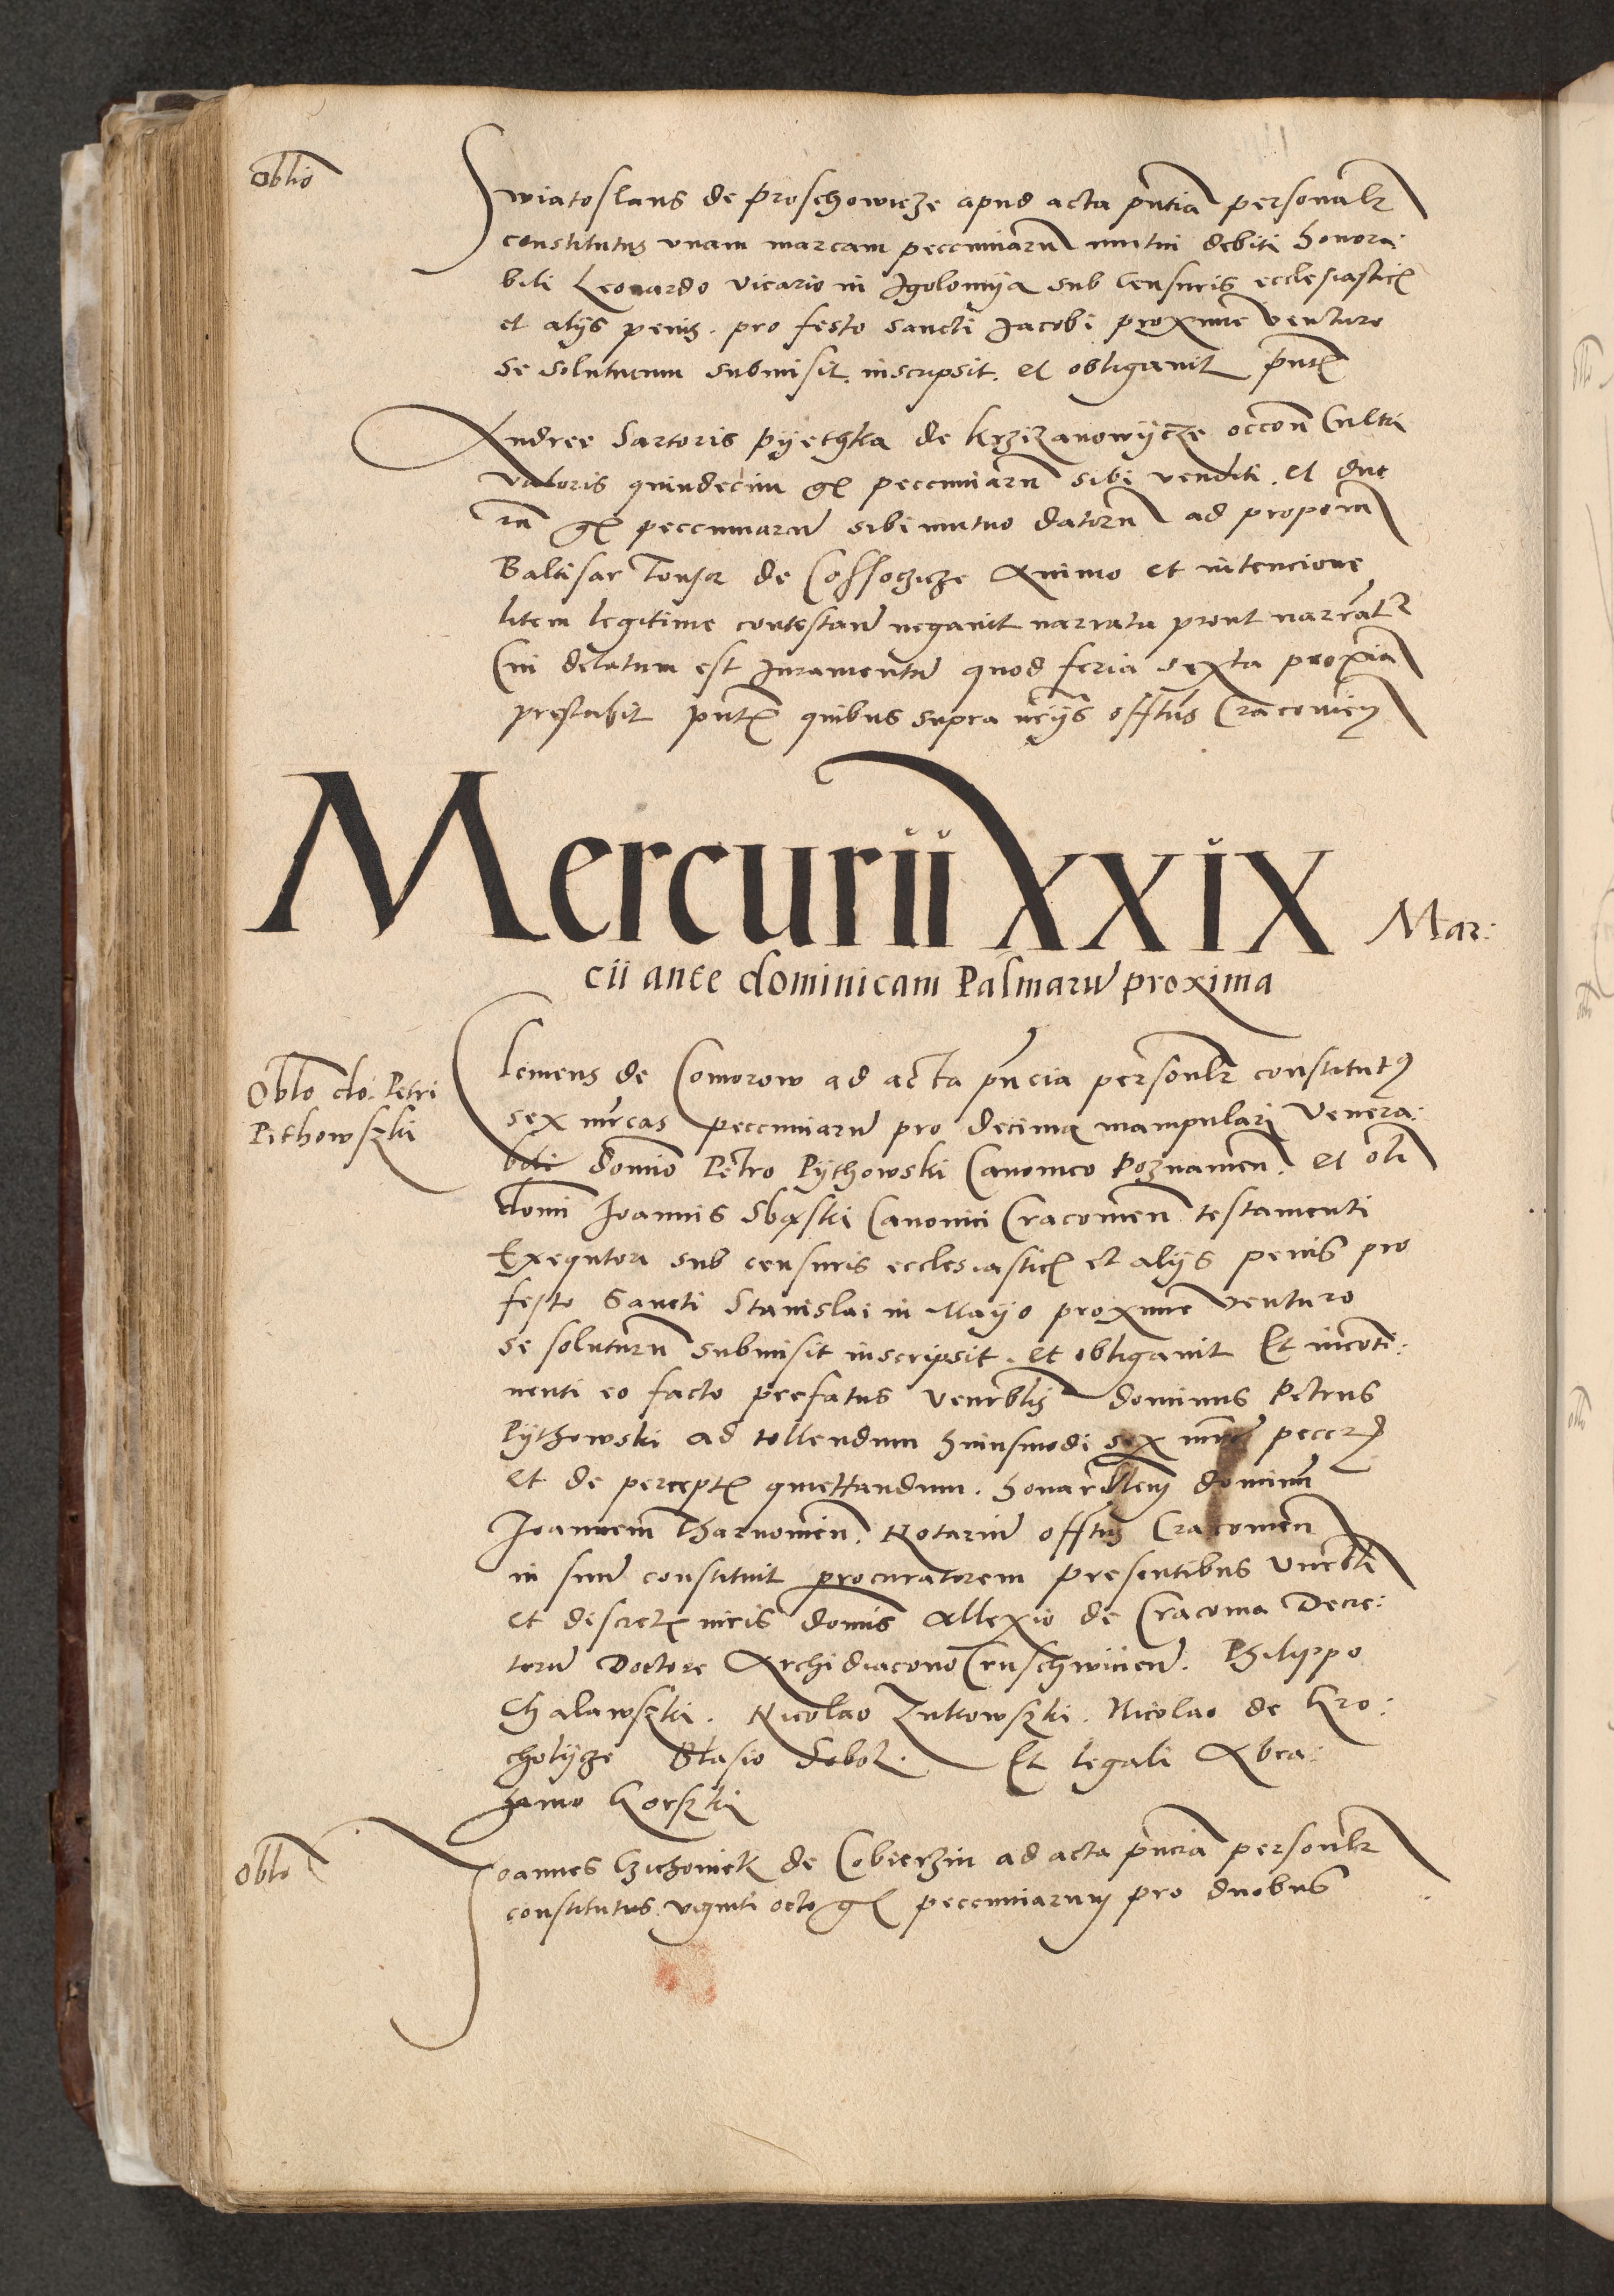 oblio
Swiatoslaus de Proschowicze apud acta pntia personalr
constitutus vnam marcam peccuniaru mutui debiti honora:
bili Leonardo vicario in Igolomija sub censuris ecclesiastic
et alijs penis. pro festo sancti Jacobi proxime venturo
se soluturum submisit. inscripsit. et obligauit pntˢ
Andree Sartoris Pijethka de Krzizanowijcze occone Cultri
valoris quindecim gr peccuniaru sibi venditi. et duo
ru gr peccuniaru sibi mutuo datoru ad propoita
Baltisar Tonsor de Cossoczicze Animo et intencione
litem legitime contestand negauit narrata prout narratr
Cui delatum est Juramentu quod feria sexta proxia
prestabit pntˢ quibus supra nrijs offtus Cracouien
Mercurii XXIX Mar:
cii ante dominicam Palmaru proxima
Oblo do. Petri
Pithowszki
Clemens de Comorow ad acta pncia personlr constitutꝰ
sex mrcas peccuniaru pro decima manipulari Venera:
bili domio Petro Pijthowski Canonico Poznanien. et oli
domi Joannis Sbąski Canonici Cracouien testamenti
Exequtori sub censuris ecclesiastic et alijs penis pro
festo Sancti Stanislai in Maijo proxime venturo
se soluturu submisit inscripsit. et obligauit Et inconti:
nenti eo facto prefatus venrblis dominus Petrus
Pijthowski ad tollendum huiusmodi sex mrcas peccr
et de perceptˢ quiettandum. honarblem dominu
Joannem Tharnouien. Notariu offtus Cracouien
in suu constituit procuratorem presentibus Vnrbli
et discretˢ uiris domis Allexio de Cracouia Decre:
toru Doctore Archidiacono Cruschwicien. Philippo
Chalawszki. Nicolao Zukowszki. Nicolao de Kro:
cholijcze Stasio Sobol. Et legali Abra:
hamo Gorszki
Oblo
Joannes Czichonick de Cobierzin ad acta pncia personlr
constitutus viginti octo gr peccuniarum pro duobus